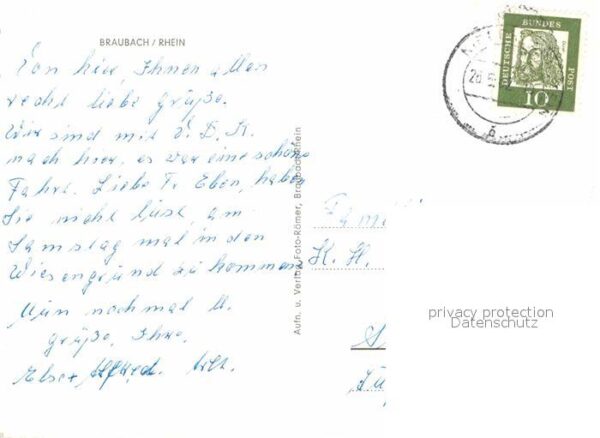 BRAUBACH / RHEIN
Von hier, Ihnen allen
recht liebe Grüße.
Wir sind mit V. D. K.
nach hier, es war eine schöne
Fahrt. Liebe Fr. Eben, haben
Sie nicht Lust, am
Samstag mal in den
Wiesengrund zu kommen
Nun nochmal
Grüße, Ihre
Else
Aufn. u. Verlag Foto-Römer, Braubach/Rhein
DEUTSCHE BUNDES POST
10
Fam
K. H.
privacy protection
Datenschutz